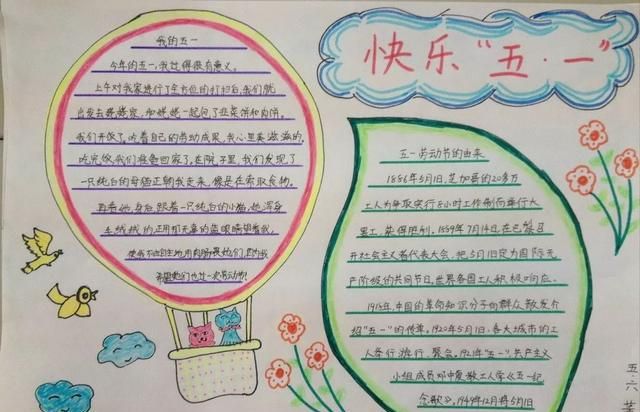 快乐“五·一”
我的五一
今年的五一,我过得很有意义。
上午对我家进行了全方位的打扫后,我们就
出发去姥姥家,和姥姥一起包了韭菜饼和肉饼。
我们开饭了,吃着自己的劳动成果,我心里美滋滋的。
吃完饭,我们准备回家了,在院子里,我们发现了
一只纯白的母猫正朝我走来,像是在索取食物。
再看她身后,跟着一只纯白的小猫,她浑身
毛绒绒的正用那天真的蓝眼睛望着我,
使我不由自主地用肉肠喂她们,因为我
希望她们也过一次劳动节!
五一劳动节的由来
1886年5月1日,芝加哥的20多万
工人为争取实行8小时工作制而举行大
罢工,获得胜利。1889年7月14日,在巴黎召
开社会主义者代表大会,把5月1日定为国际无
产阶级的共同节日,世界各国工人积极响应。
1918年,中国的革命知识分子向群众散发介
绍“五一”的传单。1920年5月1日,各大城市的工
人举行游行、聚会。1921年“五一”,共产主义
小组成员邓中夏教工人学《五一纪
念歌》,1949年12月将5月1日
五·六